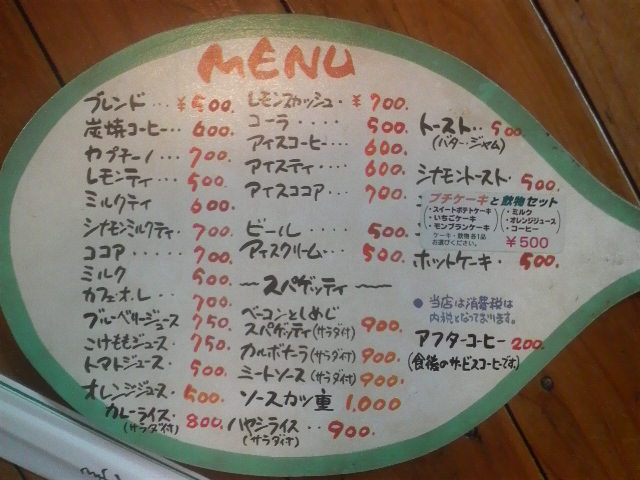 MENU
ブレンド… ¥500.
炭焼コーヒー… 600.
カプチーノ… 700.
レモンティ… 500.
ミルクティ 600.
シナモンミルクティ 700.
ココア…… 700.
ミルク 500.
カフェオ・レ… 700.
ブルーベリージュース 750.
こけももジュース・ 750.
トマトジュース 500.
オレンジジュース 500.
カレーライス・ 800.
(サラダ付)
レモンスカッシュ・ ¥700.
コーラ…… 500.
アイスコーヒー・・ 600.
アイスティ・・・ 600.
アイスココア・・ 700.
ビール…… 500.
アイスクリーム… 500.
〜スパゲッティ〜
ベーコンとしめじ
スパゲッティ(サラダ付) 900.
カルボナーラ(サラダ付) 900.
ミートソース(サラダ付) 900.
ソースカツ重 1.000
ハヤシライス・・ 900.
(サラダ付)
トースト・・ 500
(バター・ジャム)
シナモントースト・ 500.
プチケーキと飲物セット
・スイートポテトケーキ
・いちごケーキ
・モンブランケーキ
・ミルク
・オレンジジュース
・コーヒー
ケーキ・飲物 各1品
お選びください。
¥500
ホットケーキ・ 500.
● 当店は消費税は
内税となっております。
アフターコーヒー 200.
(食後のサービスコーヒーです。)